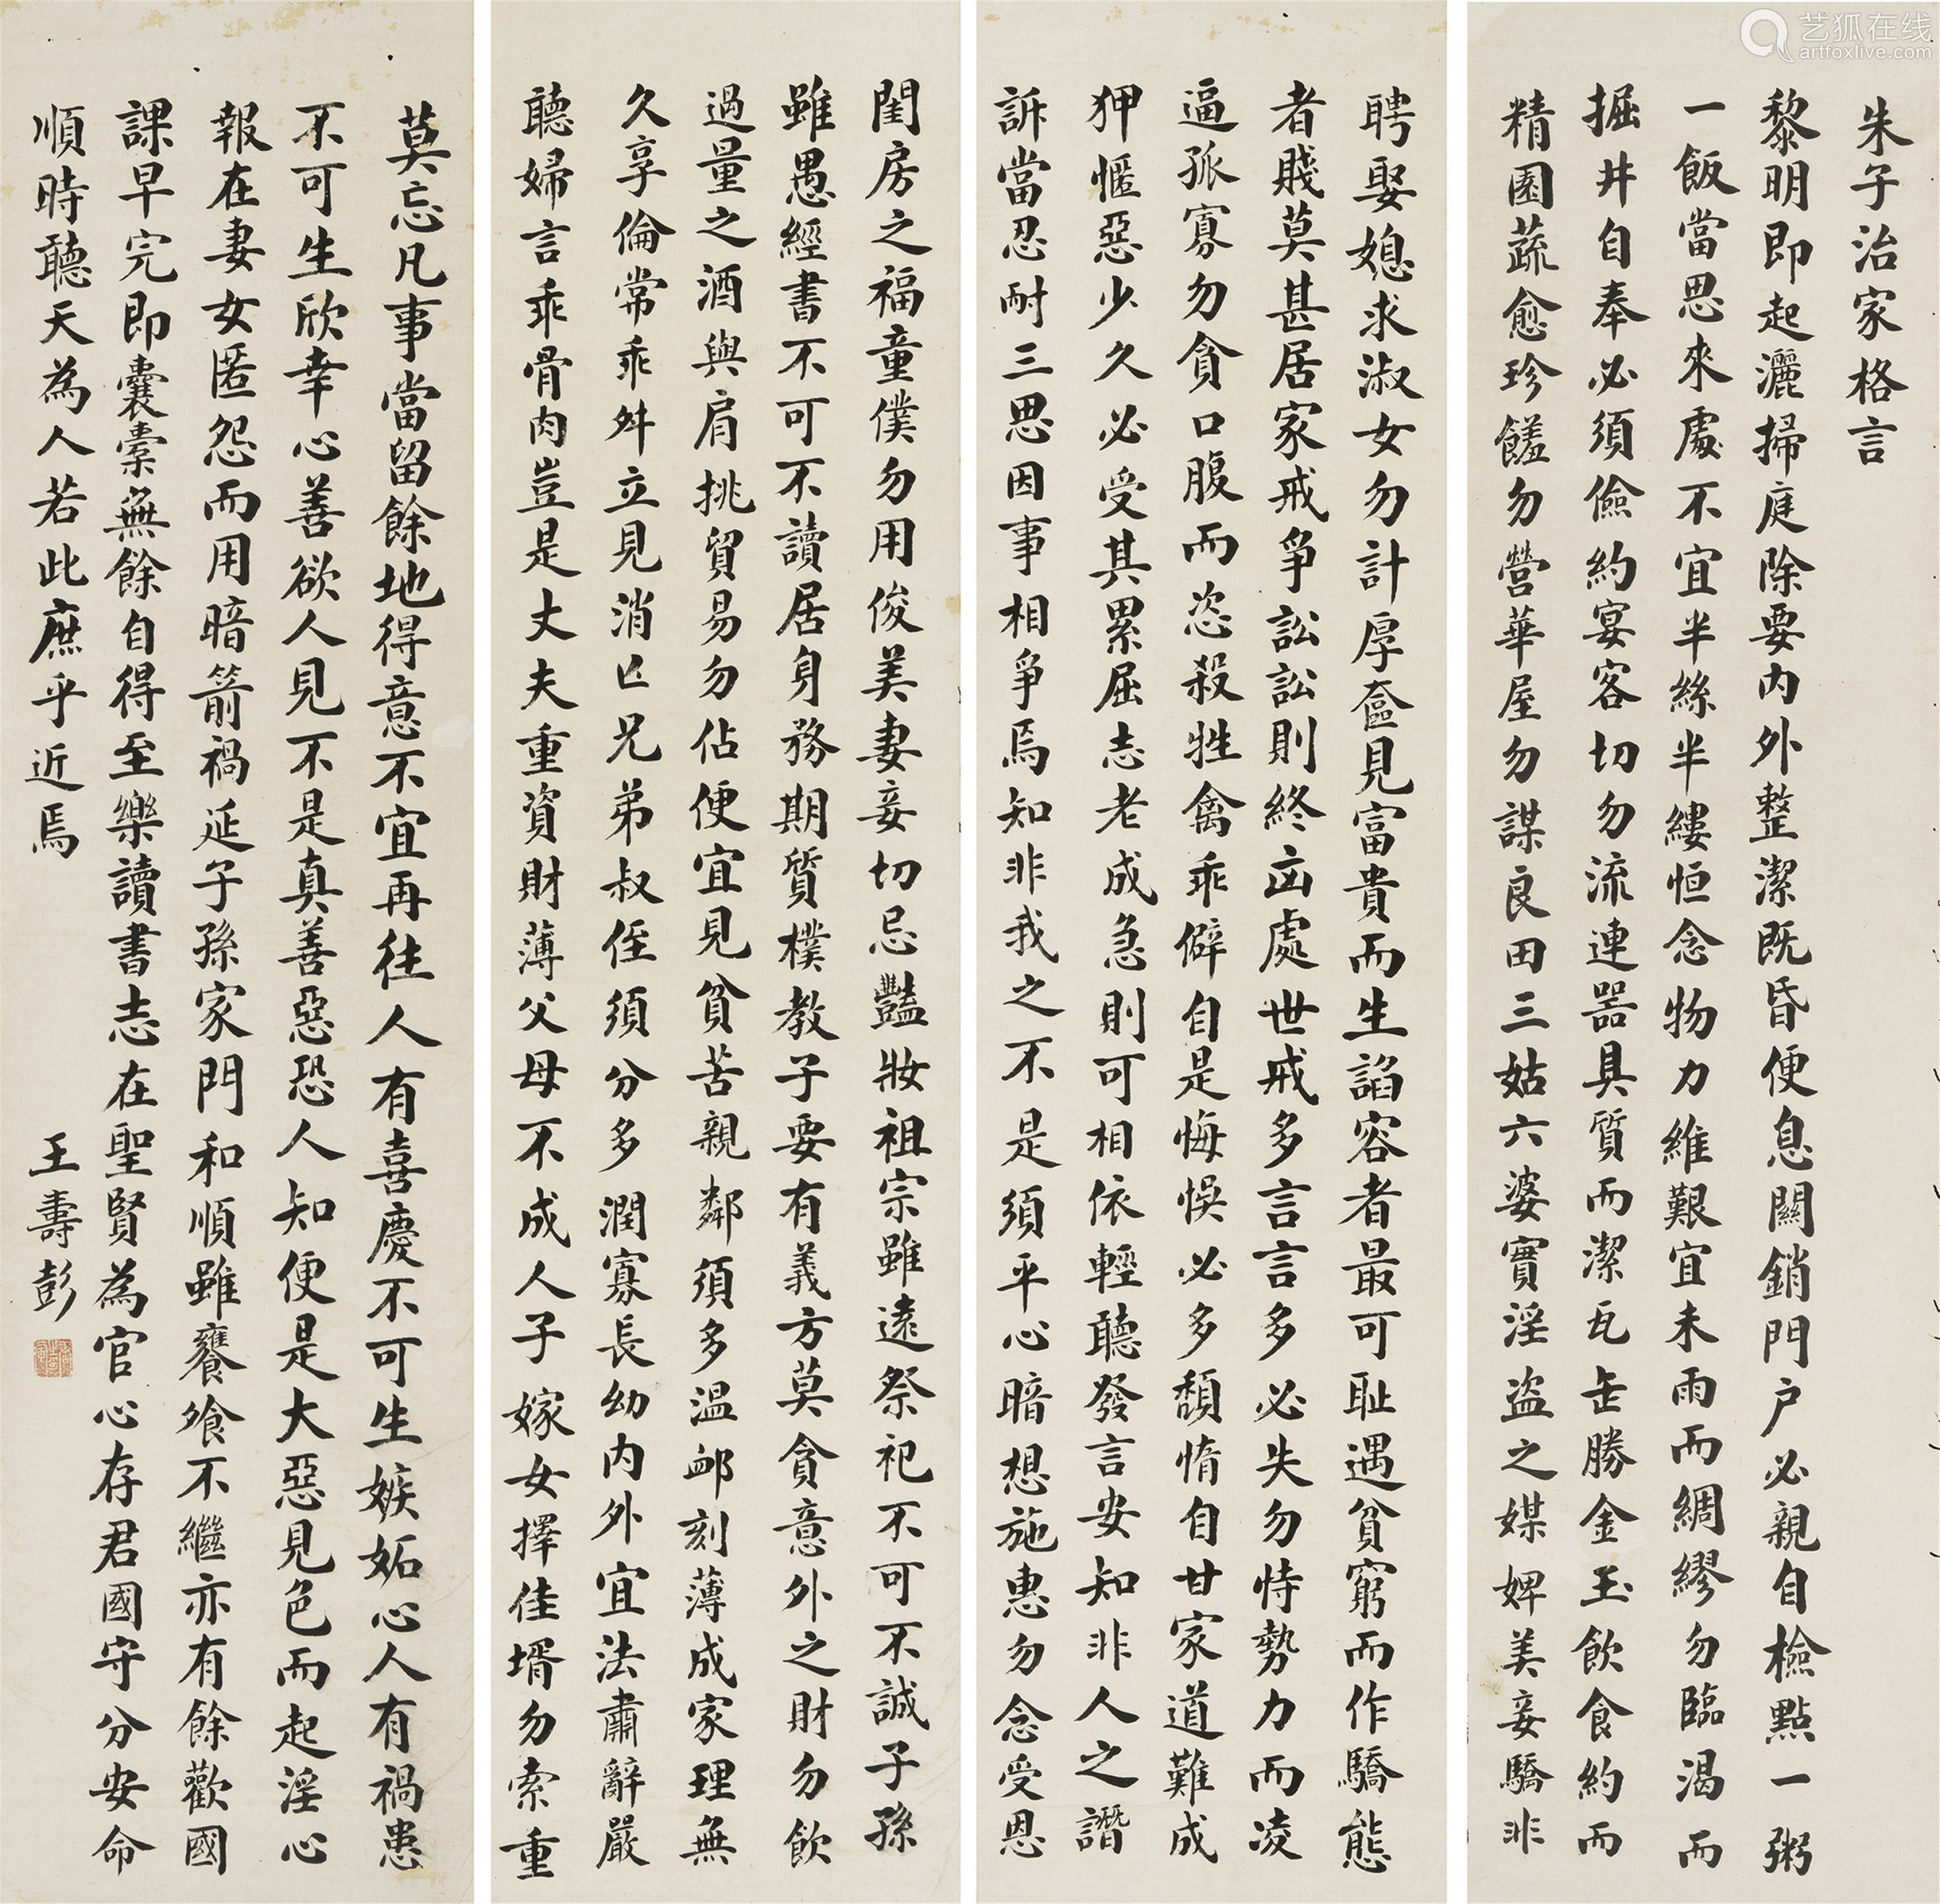 朱子治家格言
黎明即起灑掃庭除要內外整潔既昏便息關銷門户必親自檢點一粥
一飯當思來處不宜半絲半縷恒念物力維艱宜未雨而綢繆勿臨渴而
掘井自奉必須儉約宴客切勿流連器具質而潔瓦缶勝金玉飲食約而
精園蔬愈珍饈勿營華屋勿謀良田三姑六婆實淫盜之媒婢美妾驕非
聘娶媳求淑女勿計厚奩見富貴而生諂容者最可耻遇貧窮而作驕態
者賤莫甚居家戒爭訟訟則終凶處世戒多言言多必失勿恃勢力而凌
逼孤寡勿貪口腹而恣殺牲禽乖僻自是悔悞必多頹惰自甘家道難成
狎慝惡少久必受其累屈志老成急則可相依輕聽發言安知非人之譖
訴當忍耐三思因事相爭焉知非我之不是須平心暗想施惠勿念受恩
閨房之福童僕勿用俊美妻妾切忌豔妝祖宗雖遠祭祀不可不誠子孫
雖愚經書不可不讀居身務期質樸教子要有義方莫貪意外之財勿飲
過量之酒與肩挑貿易勿佔便宜見貧苦親鄰須多温卹刻薄成家理無
久享倫常乖舛立見消亡兄弟叔侄須分多潤寡長幼內外宜法肅辭嚴
聽婦言乖骨肉豈是丈夫重資財薄父母不成人子嫁女擇佳壻勿索重
莫忘凡事當留餘地得意不宜再往人有喜慶不可生嫉妬心人有禍患
不可生欣幸心善欲人見不是真善惡恐人知便是大惡見色而起淫心
報在妻女匿怨而用暗箭禍延子孫家門和順雖饔飧不繼亦有餘歡國
課早完即囊橐無餘自得至樂讀書志在聖賢為官心存君國守分安命
順時聽天為人若此庶乎近焉
王壽彭
艺狐在线
artfoxlive.com